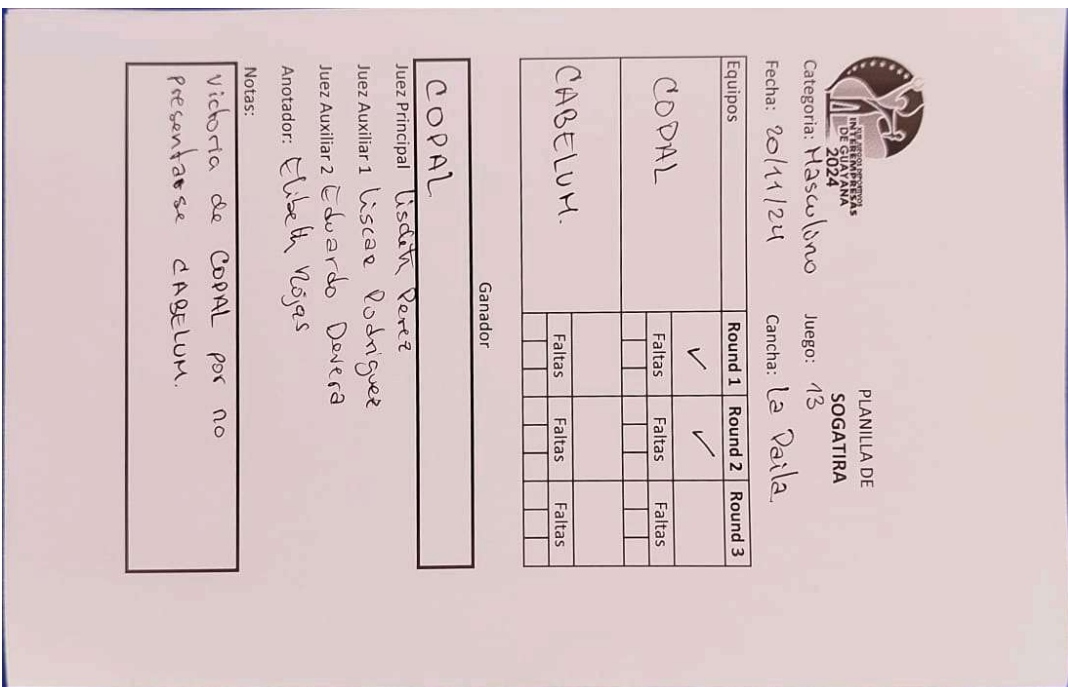 JUEGOS DEPORTIVOS
INTEREMPRESAS
DE GUAYANA
2024
PLANILLA DE
SOGATIRA
Categoria: Masculono Juego: 13
Fecha: 20/11/24 Cancha: La Paila.
Equipos Round 1 Round 2 Round 3
COPAL ✓ ✓
Faltas Faltas Faltas
CABELUM.
Faltas Faltas Faltas
Ganador
COPAL
Juez Principal Lisdeth Perez
Juez Auxiliar 1 Liscar Rodriguez
Juez Auxiliar 2 Eduardo Devera
Anotador: Elibeth Rojas
Notas:
Victoria de COPAL por no
presentarse CABELUM.